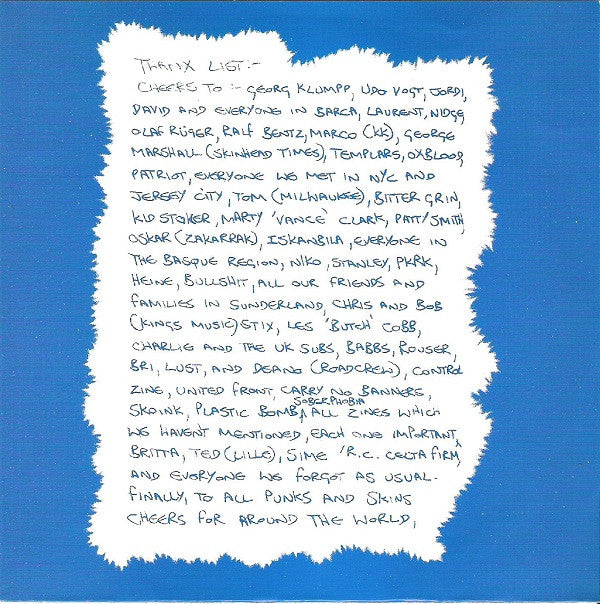 THANX LIST:-
CHEERS TO :- GEORG KLUMPP, UDO VOGT, JORDI,
DAVID AND EVERYONE IN BARCA, LAURENT, NIDGE
OLAF RÜGER, RALF BENTZ, MARCO (KK), GEORGE
MARSHALL (SKINHEAD TIMES), TEMPLARS, OXBLOOD
PATRIOT, EVERYONE WE MET IN NYC AND
JERSEY CITY, TOM (MILWAUKEE), BITTER GRIN,
KID STOKER, MARTY 'VANCE' CLARK, PATTY SMITH,
OSKAR (ZAKARRAK), ISKANBILA, EVERYONE IN
THE BASQUE REGION, NIKO, STANLEY, PKRK,
HEINE, BULLSHIT, ALL OUR FRIENDS AND
FAMILIES IN SUNDERLAND, CHRIS AND BOB
(KINGS MUSIC) STIX, LES 'BUTCH' COBB,
CHARLIE AND THE UK SUBS, BABBS, ROUSER,
BRI, LUST, AND DEANO (ROADCREW), CONTROL
ZINE, UNITED FRONT, CARRY NO BANNERS,
SKOINK, PLASTIC BOMB, SOBERPHOBIA ALL ZINES WHICH
WE HAVENT MENTIONED, EACH ONE IMPORTANT,
BRITTA, TED (LILLE), SIME 'R.C. CELTA FIRM,
AND EVERYONE WE FORGOT AS USUAL.
FINALLY, TO ALL PUNKS AND SKINS
CHEERS FOR AROUND THE WORLD,